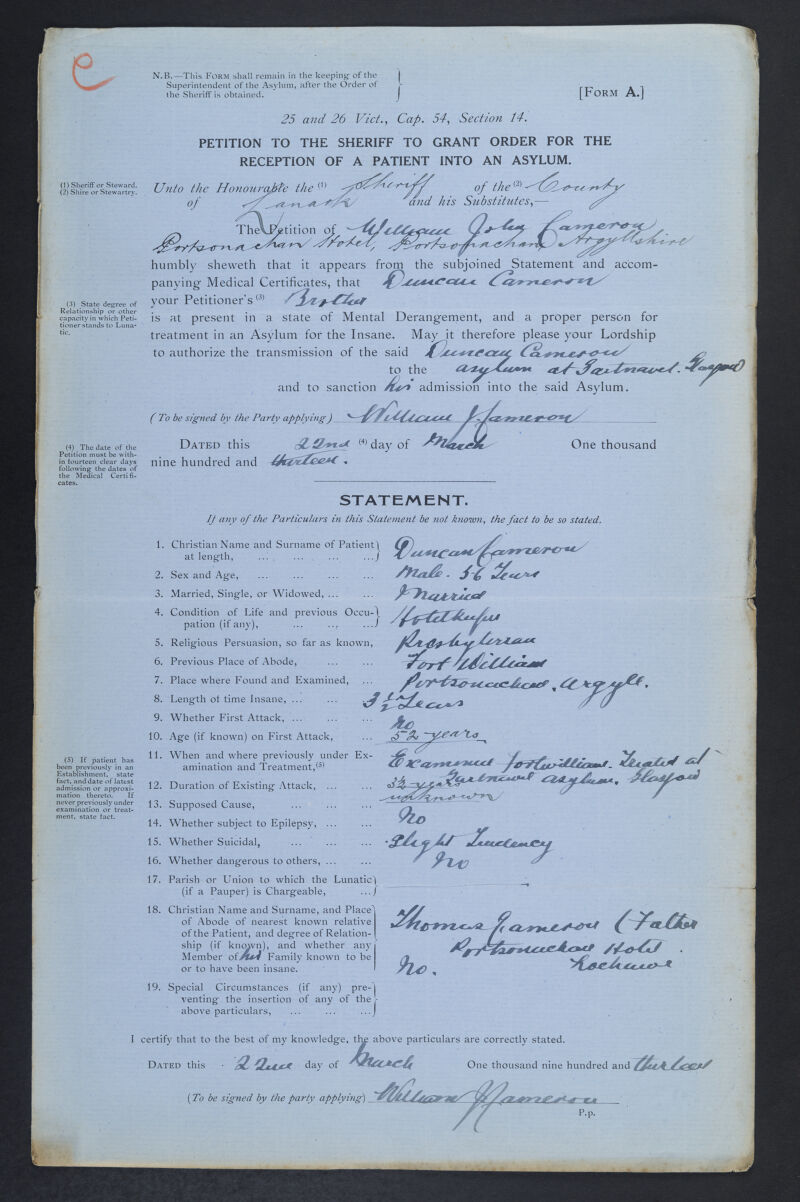 e
N.B.—This Form shall remain in the keeping of the
Superintendent of the Asylum, after the Order of
the Sheriff is obtained.
[Form A.]
25 and 26 Vict., Cap. 54, Section 14.
PETITION TO THE SHERIFF TO GRANT ORDER FOR THE
RECEPTION OF A PATIENT INTO AN ASYLUM.
(1) Sheriff or Steward.
(2) Shire or Stewartry.
Unto the Honourable the (1) Sheriff of the (2) County
of Lanark and his Substitutes,—
The Petition of William John Cameron
Portsonachan Hotel, Portsonachan Argyllshire
humbly sheweth that it appears from the subjoined Statement and accom-
panying Medical Certificates, that Duncan Cameron
your Petitioner's (3) Brother
(3) State degree of
Relationship or other
capacity in which Peti-
tioner stands to Luna-
tic.
is at present in a state of Mental Derangement, and a proper person for
treatment in an Asylum for the Insane. May it therefore please your Lordship
to authorize the transmission of the said Duncan Cameron
to the asylum at Gartnavel. Glasgow
and to sanction his admission into the said Asylum.
(To be signed by the Party applying) William J. Cameron
(4) The date of the
Petition must be with-
in fourteen clear days
following the dates of
the Medical Certifi-
cates.
Dated this 22nd (4) day of March One thousand
nine hundred and thirteen.
STATEMENT.
If any of the Particulars in this Statement be not known, the fact to be so stated.
1. Christian Name and Surname of Patient
at length, ... ... ... ... Duncan Cameron
2. Sex and Age, ... ... ... ... Male. 56 Years
3. Married, Single, or Widowed, ... ... Married
4. Condition of Life and previous Occu-
pation (if any), ... ... ... Hotelkeeper
5. Religious Persuasion, so far as known, Presbyterian
6. Previous Place of Abode, ... ... Fort William
7. Place where Found and Examined, ... Portsonachan. Argyll.
8. Length of time Insane, ... ... 3 1/2 Years
9. Whether First Attack, ... ... ... No
10. Age (if known) on First Attack, ... 52 years
(5) If patient has
been previously in an
Establishment, state
fact, and date of latest
admission or approxi-
mation thereto. If
never previously under
examination or treat-
ment, state fact.
11. When and where previously under Ex-
amination and Treatment,(5) Examined Fortwilliam. Treated at
Gartnavel asylum. Glasgow
12. Duration of Existing Attack, ... ... 3½ years
13. Supposed Cause, ... ... ... unknown
14. Whether subject to Epilepsy, ... ... No
15. Whether Suicidal, ... ... ... Slight Tendency
16. Whether dangerous to others, ... ... No
17. Parish or Union to which the Lunatic
(if a Pauper) is Chargeable, ...
18. Christian Name and Surname, and Place
of Abode of nearest known relative
of the Patient, and degree of Relation-
ship (if known), and whether any
Member of his Family known to be
or to have been insane.
Thomas Cameron (Father
Portsonachan Hotel.
Lochawe
No.
19. Special Circumstances (if any) pre-
venting the insertion of any of the
above particulars, ... ... ...
I certify that to the best of my knowledge, the above particulars are correctly stated.
Dated this 22nd day of March One thousand nine hundred and thirteen
(To be signed by the party applying) William J Cameron
P.p.